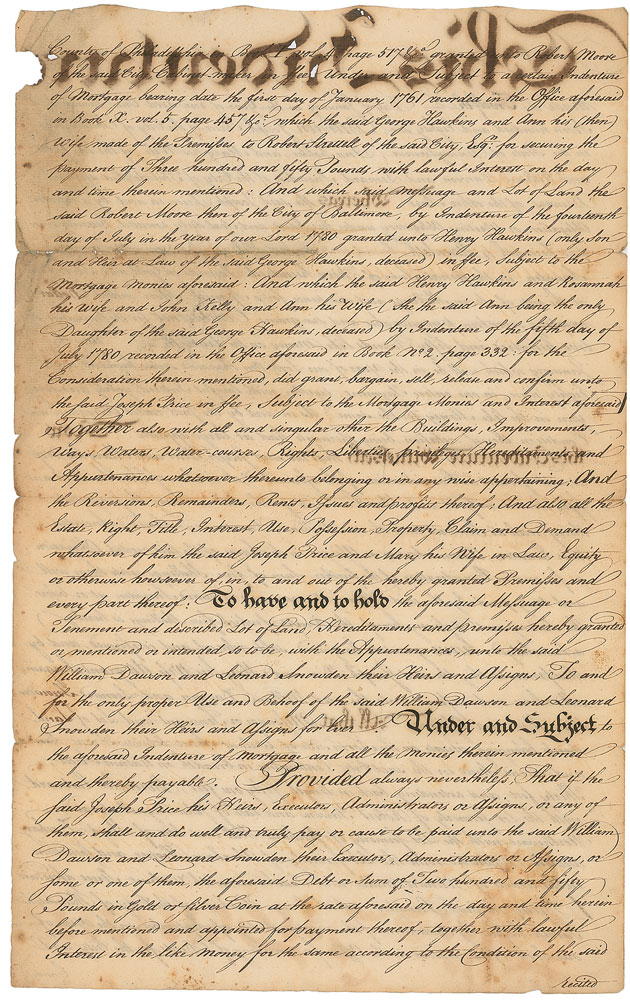 County of Philadelphia in Book vol. page 517 &c. granted unto Robert Moore
of the said City Cabinet maker in ffee, Under and Subject to a certain Indenture
of Mortgage bearing date the first day of January 1761 recorded in the Office aforesaid
in Book X. vol. 5. page 457 &c. which the said George Hawkins and Ann his (then)
Wife made of the Premisses to Robert Strettell of the said City, Esqr. for securing the
payment of Three hundred and fifty Pounds with lawful Interest on the day
and time therein mentioned: And which said Messuage and Lot of Land the
said Robert Moore then of the City of Baltimore, by Indenture of the fourteenth
day of July in the year of our Lord 1780 granted unto Henry Hawkins (only Son
and Heir at Law of the said George Hawkins, deceased) in ffee, Subject to the
Mortgage Monies aforesaid: And which the said Henry Hawkins and Rosannah
his Wife and John Kelly and Ann his Wife (She the said Ann being the only
Daughter of the said George Hawkins, deceased) by Indenture of the fifth day of
July 1780, recorded in the Office aforesaid in Book No. 2. page 332: for the
Consideration therein mentioned, did grant, bargain, sell, release and confirm unto
the said Joseph Price in ffee, Subject to the Mortgage Monies and Interest aforesaid
Together also with all and singular other the Buildings, Improvements,
Ways, Waters, Water-courses, Rights, Liberties, Hereditaments and
Appurtenances whatsoever thereunto belonging or in any wise appertaining; And
the Reversions, Remainders, Rents, Issues and profits thereof; And also all the
Estate, Right, Title, Interest, Use, Possession, Property, Claim and Demand
whatsoever of him the said Joseph Price and Mary his Wife in Law, Equity
or otherwise howsoever of, in, to and out of the hereby granted Premisses and
every part thereof: To have and to hold the aforesaid Messuage or
Tenement and described Lot of Land, Hereditaments and premisses hereby granted
or mentioned or intended, so to be, with the Appurtenances, unto the said
William Dawson and Leonard Snowden their Heirs and Assigns, To and
for the only proper Use and Behoof of the said William Dawson and Leonard
Snowden their Heirs and Assigns for ever Under and Subject to
the aforesaid Indenture of Mortgage and all the Monies therein mentioned
and thereby payable. Provided always nevertheless, That if the
said Joseph Price his Heirs, Executors, Administrators or Assigns, or any of
them, shall and do well and truly pay or cause to be paid unto the said William
Dawson and Leonard Snowden their Executors, Administrators or Assigns, or
some or one of them, the aforesaid Debt or sum of Two hundred and fifty
Pounds in Gold or silver Coin at the rate aforesaid on the day and time herein
before mentioned and appointed for payment thereof, together with lawful
Interest in the like money for the same according to the Condition of the said
recited